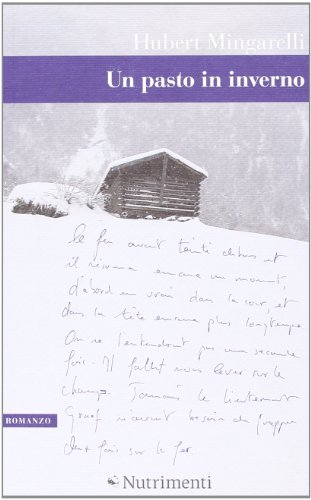 Hubert Mingarelli
Un pasto in inverno
Le fer avait tinté dehors et
il résonna encore un moment,
d'abord en vrai dans la cour, et
dans la tête encore plus longtemps.
On ne l'entendrait pas une seconde
fois. Il fallut nous lever sur le
champ. Jamais le lieutenant
Graaf n'avait besoin de frapper
deux fois sur le fer
ROMANZO
Nutrimenti